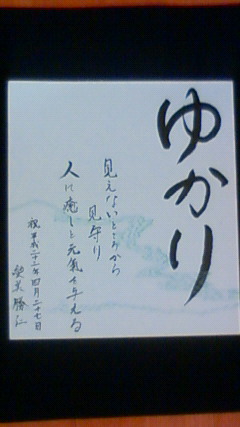 ゆかり
見えないところから
見守り
人に癒しと元気を与える
祝 平成二十二年四月二十七日